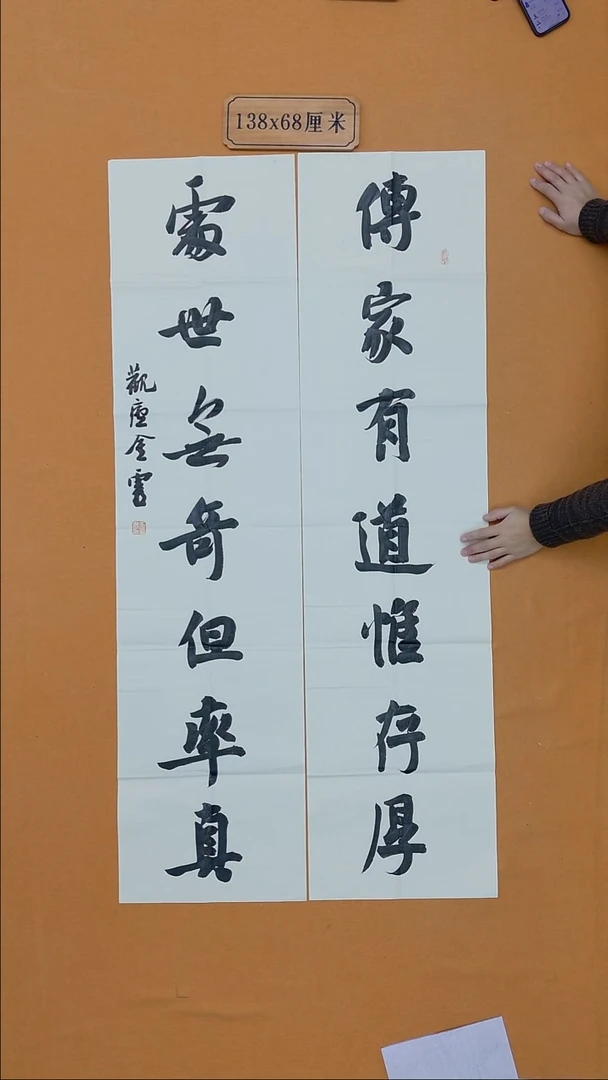 138x68厘米
傳家有道惟存厚
處世無奇但率真
觀應金雲